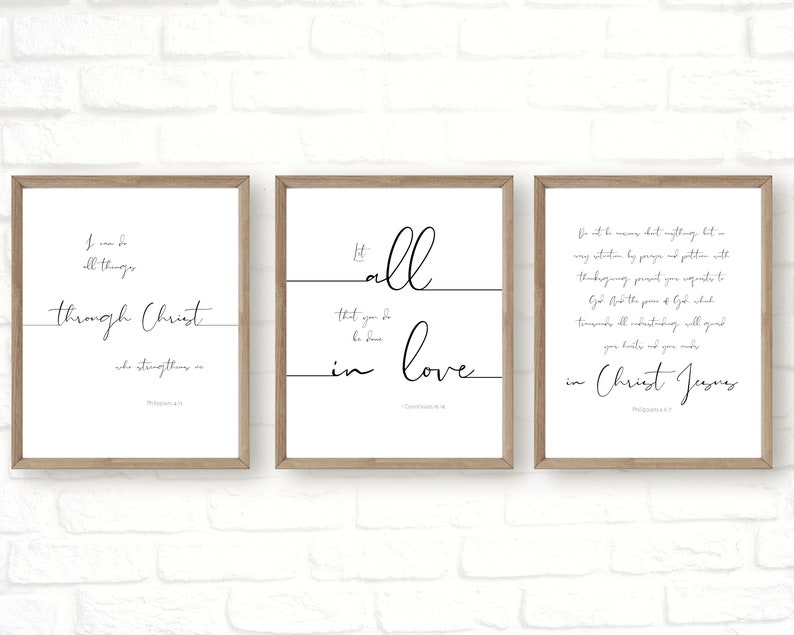 I can do
all things
through Christ
who strengthens me
Philippians 4:13
Let
all
that you do
be done
in love
1 Corinthians 16:14
Do not be anxious about anything, but in
every situation, by prayer and petition, with
thanksgiving, present your requests to
God. And the peace of God, which
transcends all understanding, will guard
your hearts and your minds
in Christ Jesus
Philippians 4:6-7